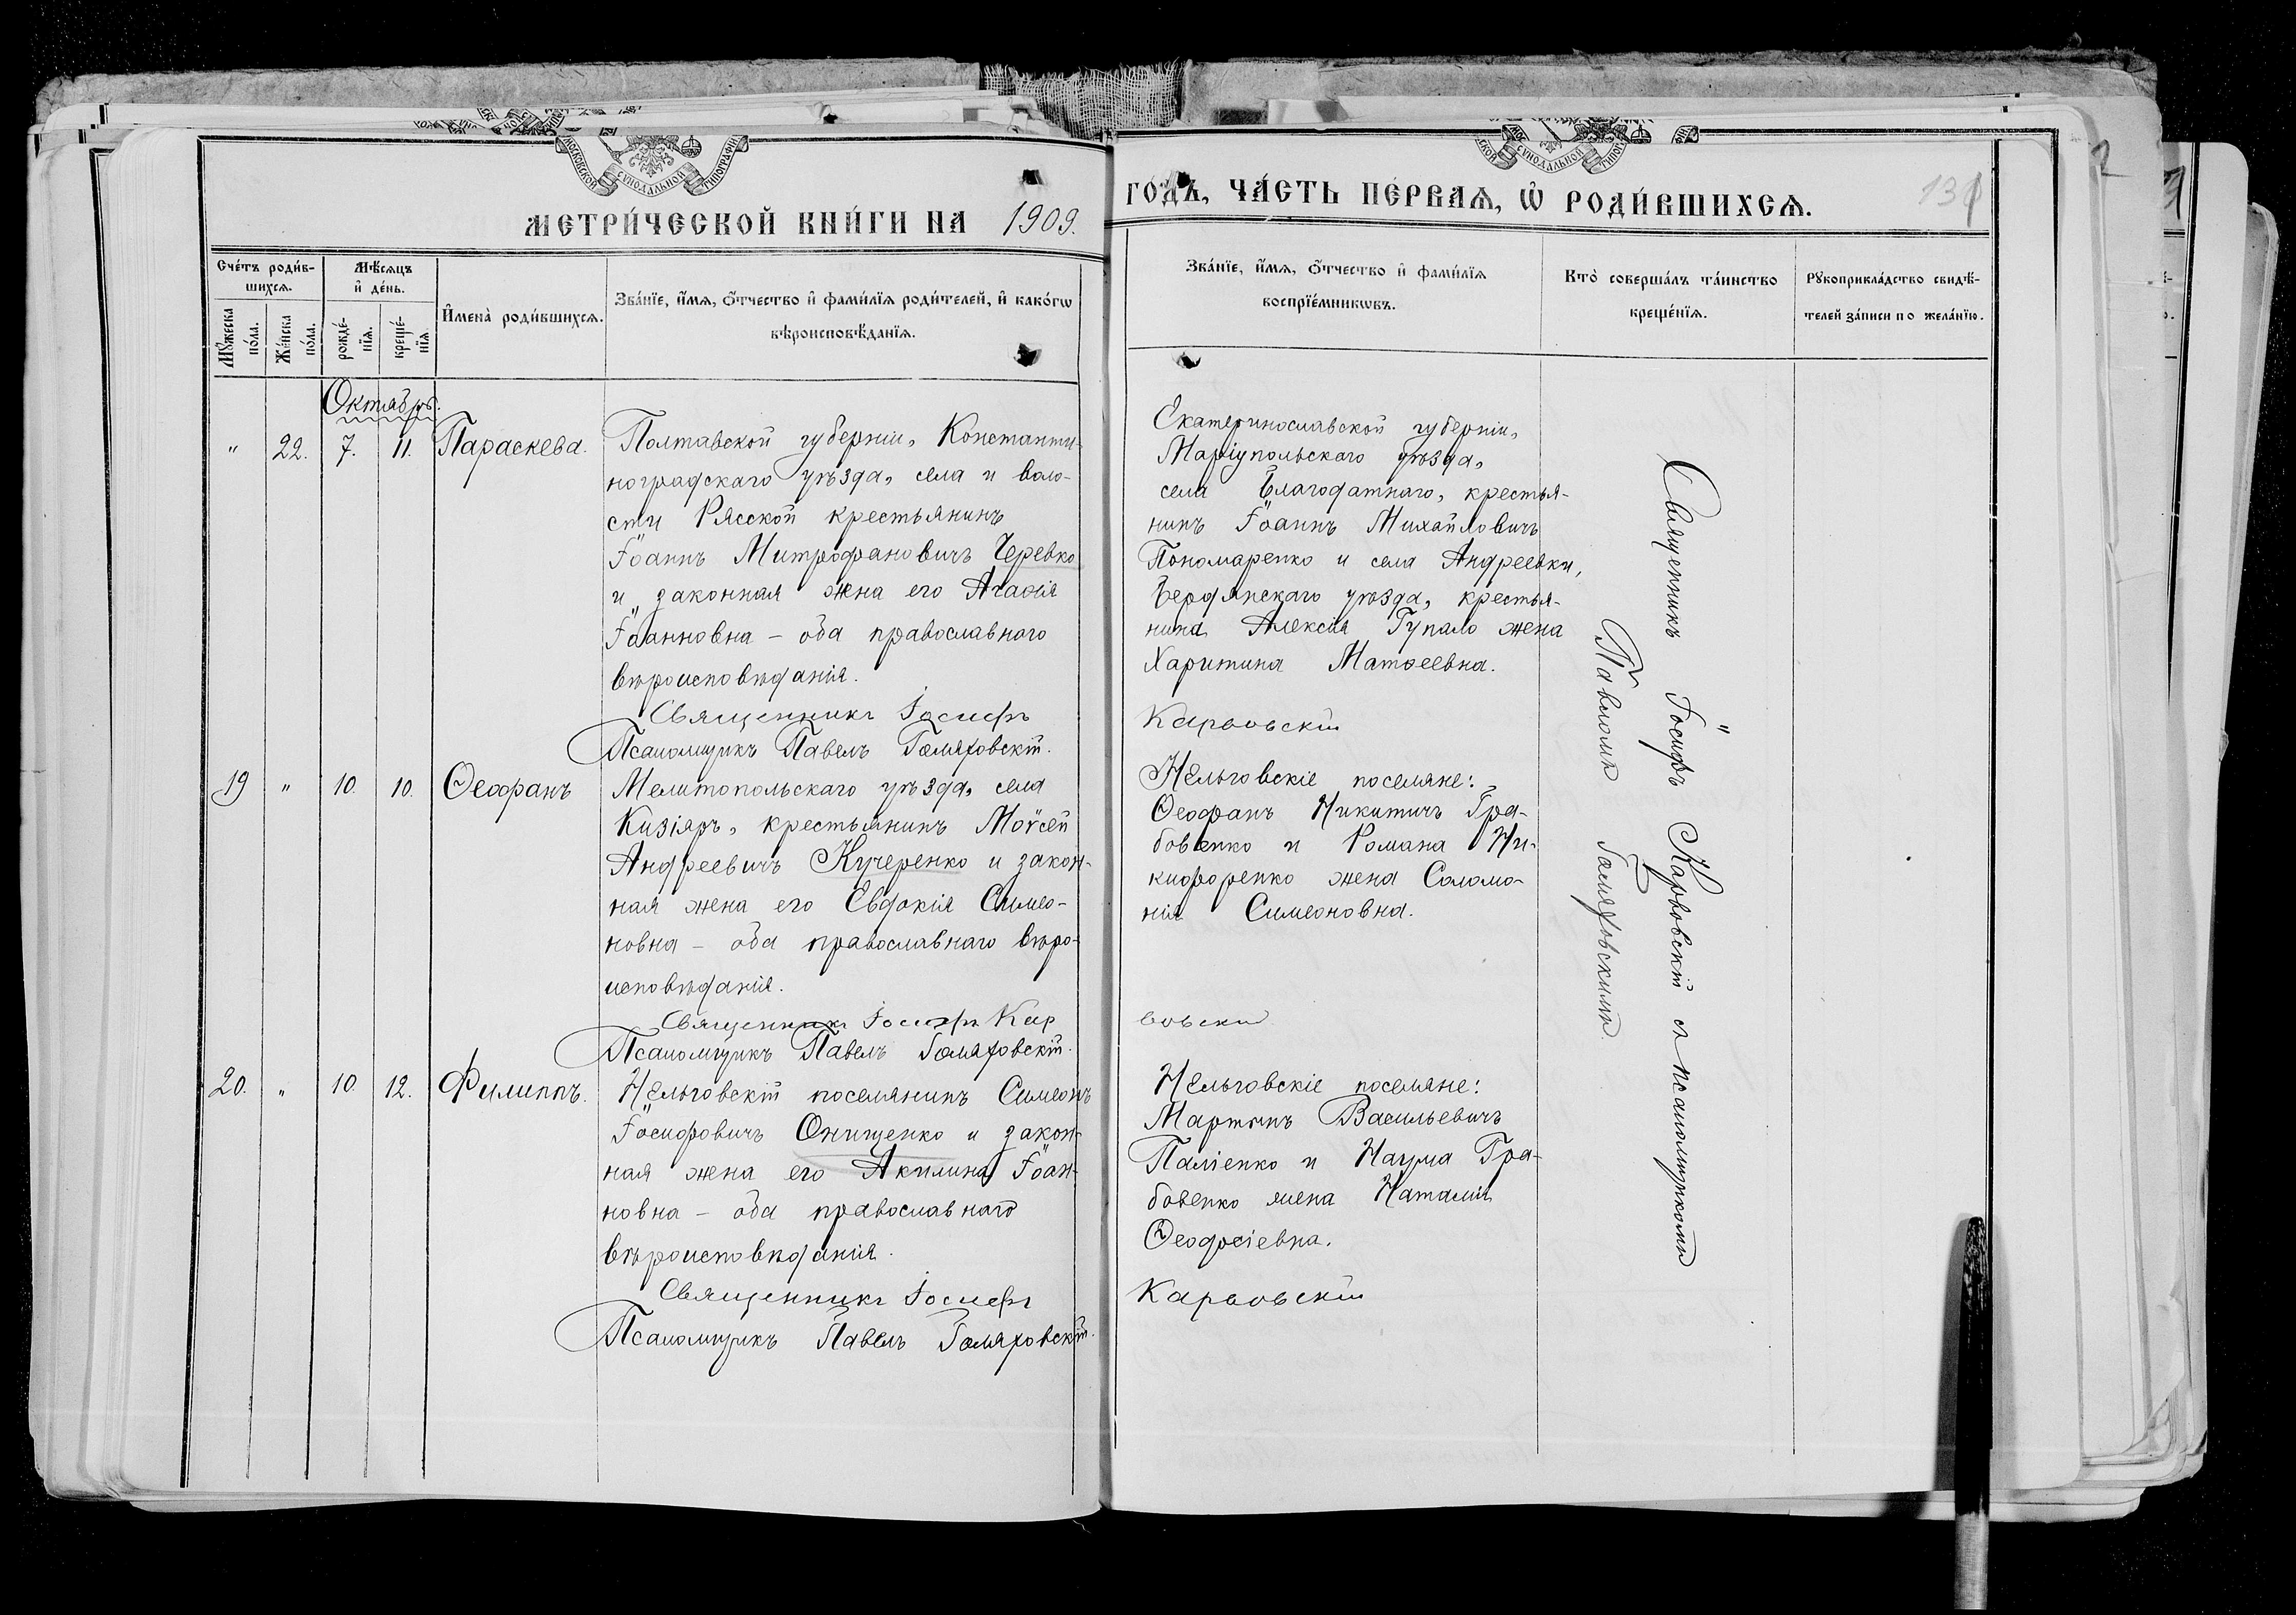 МЕТРИ́ЧЕСКОЙ КНИ́ГИ НА 1909.
ГО́ДЪ, ЧА́СТЬ ПЕ́РВАЯ, Ѿ РОДИ́ВШИХСЯ.
131
Сче́тъ роди́в-
шихся.
Мꙋ́жеска по́ла.
Же́нска по́ла.
Мѣ́сяцъ
и҆ де́нь.
рожде́-
нїя.
креще́-
нїя.
И҆мена̀ роди́вшихся.
Зва́нїе, и҆́мя, ѻ҆́тчество и҆ фами́лїя роди́телей, и҆ како́гѡ
вѣроисповѣ́данїя.
Зва́нїе, и҆́мя, ѻ҆́тчество и҆ фами́лїя
воспрїе́мникѡвъ.
Кто̀ соверша́лъ та́инство
креще́нїя.
Рꙋкоприкла́дство свидѣ́-
телей за́писи по жела́нїю.
Октябрь.
" 22. 7. 11. Параскева.
Полтавской губерніи, Константи-
ноградскаго уѣзда, села и воло-
сти Рясской крестьянинъ
Іоаннъ Митрофановичъ Черевко
и законная жена его Агаѳія
Іоанновна – оба православнаго
вѣроисповѣданія.
Священникъ Іосифъ
Псаломщикъ Павелъ Гомяховскій.
Екатеринославской губерніи,
Маріупольскаго уѣзда,
села Благодатнаго, крестья-
нинъ Іоаннъ Михайловичъ
Пономаренко и села Андреевки,
Бердянскаго уѣзда, крестья-
нина Алексія Гупало жена
Харитина Матѳеевна.
Карвовскій
19 " 10. 10. Ѳеофанъ
Мелитопольскаго уѣзда, села
Кизіяръ, крестьянинъ Моѵсей
Андреевичъ Кучеренко и закон-
ная жена его Евдокія Симео-
новна – оба православнаго вѣро-
исповѣданія.
Священникъ Іосифъ Кар
Псаломщикъ Павелъ Гомяховскій.
Нельговскіе поселяне:
Ѳеофанъ Никитичъ Гра-
бовенко и Романа Ни-
кифоренко жена Соломо-
нія Симеоновна.
вовскій
20. " 10. 12. Филиппъ.
Нельговскій поселянинъ Симеонъ
Іосифовичъ Онищенко и закон-
ная жена его Акилина Іоан-
новна – оба православнаго
вѣроисповѣданія.
Священникъ Іосифъ
Псаломщикъ Павелъ Гомяховскій.
Нельговскіе поселяне:
Мартинъ Васильевичъ
Паліенко и Наума Гра-
бовенко жена Наталія
Ѳеодосіевна.
Карвовскій
Священникъ Іосифъ Карвовскій съ псаломщикомъ
Павломъ Гомяховскимъ.